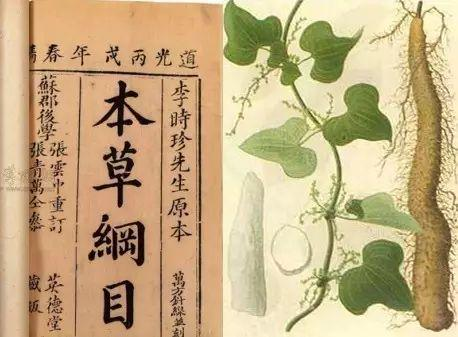 道光丙戌年春
李時珍先生原本
萬方針線並刻
本草綱目
蘇郡後學
張雲中重訂
張青萬仝參
英德堂
藏板